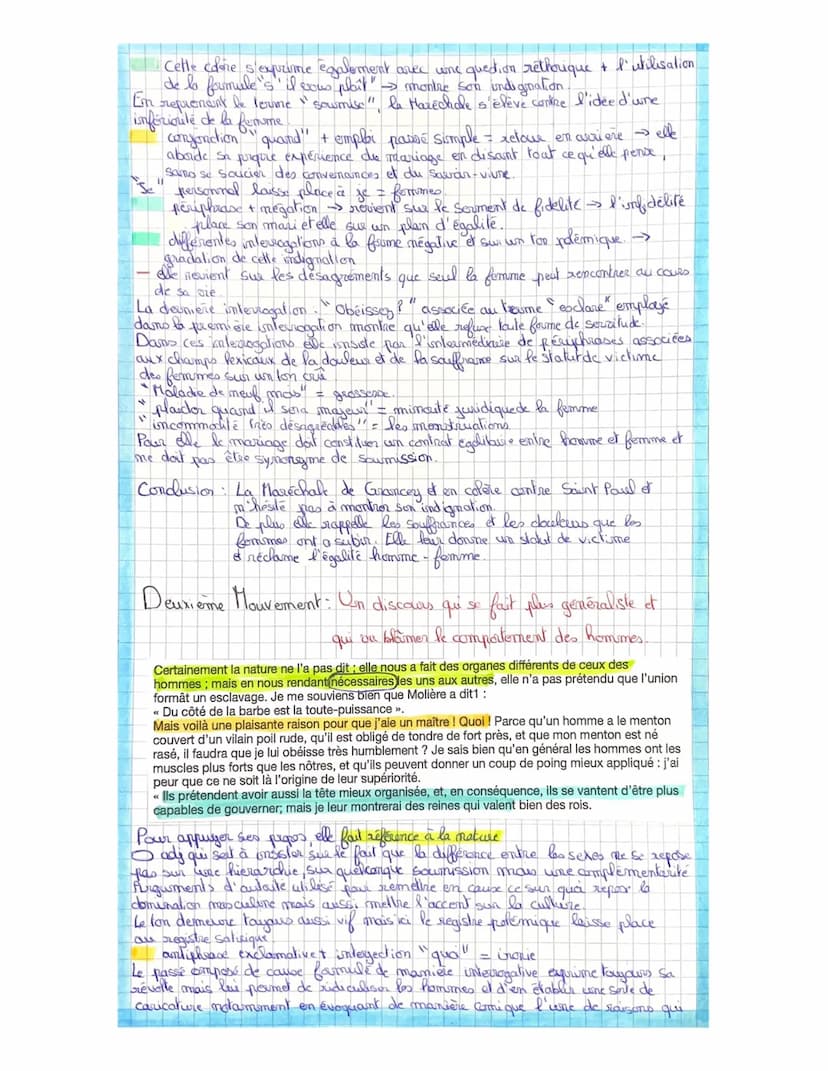 Cette colère s'exprime également avec une question réthorique + l'utilisation
de la formule "s'il vous plaît" → montre son indignation.
En reprenant le terme "soumise", la Maréchale s'élève contre l'idée d'une
infériorité de la femme.
conjonction "quand" + emploi passé simple = retour en arrière → elle
aborde sa propre expérience du mariage en disant tout ce qu'elle pense,
sans se soucier des convenances et du savoir-vivre.
"Je" personnel laisse place à je = femmes.
périphrase + négation → revient sur le serment de fidélité → l'infidélité
place son mari et elle sur un plan d'égalité.
différentes interrogations à la forme négative et sur un ton polémique. →
gradation de cette indignation
— elle revient sur les désagréments que seul la femme peut rencontrer au cours
de sa vie
La dernière interrogation : "Obéissez ?" associée au terme "esclave" employé
dans la première interrogation montre qu'elle refuse toute forme de servitude.
Dans ces interrogations elle insiste par l'intermédiaire de périphrases associées
aux champs lexicaux de la douleur et de la souffrance sur le statut de victime
des femmes sur un ton cru
"Maladie de neuf mois" = grossesse.
"plaidor quand il sera majeur" = minorité juridique de la femme
"incommodité très désagréables" = les menstruations.
Pour elle le mariage doit constituer un contrat égalitaire entre homme et femme et
ne doit pas être synonyme de soumission.
Conclusion : La Maréchale de Grancey et en colère contre Saint Paul et
n'hésite pas à montrer son indignation.
De plus elle rappelle les souffrances et les douleurs que les
femmes ont a subir. Elle leur donne un statut de victime
et réclame l'égalité homme - femme.
Deuxième Mouvement : Un discours qui se fait plus généraliste et
qui va blâmer le comportement des hommes.
Certainement la nature ne l'a pas dit ; elle nous a fait des organes différents de ceux des
hommes ; mais en nous rendant nécessaires les uns aux autres, elle n'a pas prétendu que l'union
formât un esclavage. Je me souviens bien que Molière a dit1 :
« Du côté de la barbe est la toute-puissance ».
Mais voilà une plaisante raison pour que j'aie un maître ! Quoi ! Parce qu'un homme a le menton
couvert d'un vilain poil rude, qu'il est obligé de tondre de fort près, et que mon menton est né
rasé, il faudra que je lui obéisse très humblement ? Je sais bien qu'en général les hommes ont les
muscles plus forts que les nôtres, et qu'ils peuvent donner un coup de poing mieux appliqué : j'ai
peur que ce ne soit là l'origine de leur supériorité.
« Ils prétendent avoir aussi la tête mieux organisée, et, en conséquence, ils se vantent d'être plus
capables de gouverner; mais je leur montrerai des reines qui valent bien des rois.
Pour appuyer ses propos, elle fait référence à la nature
adj qui sert à insister sur le fait que la différence entre les sexes ne se repose
pas sur une hiérarchie, sur quelconque soumission mais une complémentarité
Arguments d'autorité utilisé pour remettre en cause ce sur quoi repose la
domination masculine mais aussi mettre l'accent sur la culture.
Le ton demeure toujours aussi vif mais ici le registre polémique laisse place
au registre satirique
antiphrase exclamative + interjection "quoi" = ironie
Le passé composé de cause formulé de manière interrogative exprime toujours sa
révolte mais lui permet de ridiculiser les hommes et d'en établir une sorte de
caricature notamment en évoquant de manière comique l'une de raisons qui